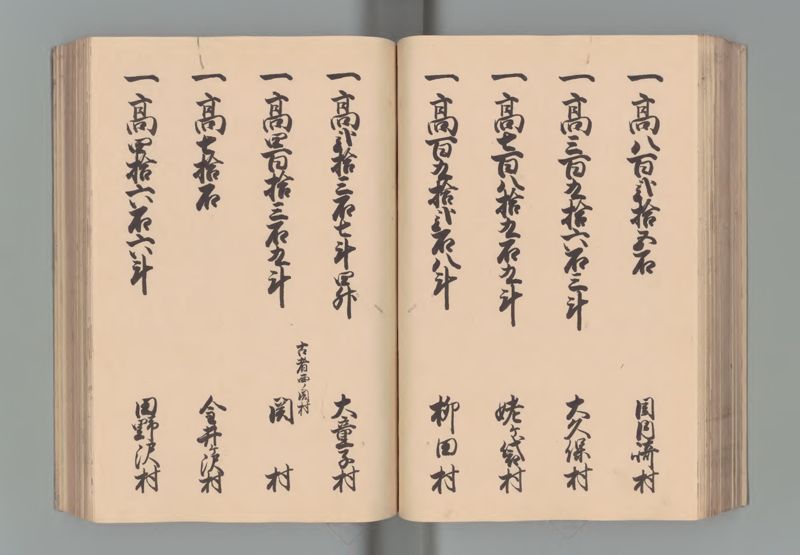 一高八百弐拾五石
月崎村
一高三百九拾六石三斗
大久保村
一高七百八拾九石九斗
姥ケ袋村
一高百九拾弐石八斗
柳田村
一高弐拾三石七斗四升
大童子村
一高四百拾三石九斗
古者西ノ関村
関村
一高七拾石
金井沢村
一高四拾六石六斗
田野沢村